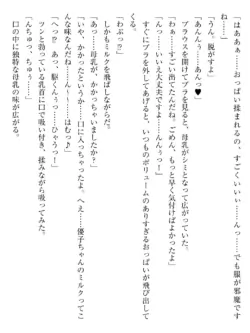 「はああぁ……おっぱい揉まれるの、すごくいいい……んっ……でも服が邪魔です
ね……」
「うん、脱がすよ」
「あんんぅ……っ♥」
ブラウスを開けてブラを見ると、母乳がシミとなって広がっていた。
……すごい出てたんだね。ごめん、もっと早く気付けばよかったよ」
……んんぅっ!」
すぐにブラを外してあげると、いつものボリュームのありすぎるおっぱいが飛び出して
くる。
しかもミルクを飛ばしながらだ。
「わぷっ!?」
「あっ……母乳が、かかっちゃいましたか?」
「いや、かかったというか……口に入っちゃったよ。へえ……優子ちゃんのミルクってこ
んな味なんだね……んっ……はむっ♪」
「へっ? か、駆くんっ……ひゃうっ!」
ツンと勃っている乳首に口で吸い付き、揉みながら吸ってみた。
「んちゅっ、ちゅう……」
口の中に独特な母乳の味が広がる。